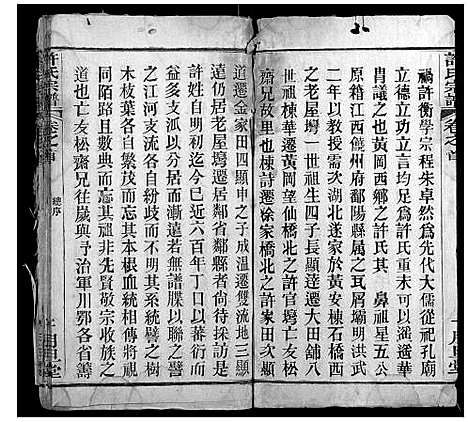 許氏宗譜
卷之首
禍許衡學宗程朱卓然爲先代大儒從祀孔廟
立德立功立言均足爲許氏重未可以遙遙華
冑也黃岡西鄉之許氏其鼻祖星五公
原江西饒州府鄱陽縣屬之瓦屑壩明洪武
二年以教授需次湖北遂家於黃安石橋西
老屋塆一世祖生四子長顯達遷大田鋪八
世祖棟華遷黃岡望仙橋北之許官塆亡友松
齋兄故里也棟詩遷徐家橋北之許家田次顯
道遷金家田四顯申之子成溫遷雙流地三顯
達仍居老屋塆遷居鄰省鄰縣者尙待採訪是
許姓自明初迄今已近六百年丁口以蕃衍而
益多支派以分居而漸遠若無譜牒以聯之譬
之江河支流各自紛歧而不明其統系譬之樹
木枝葉各自繁茂而忘其根本血統相傳將視
同陌路且數典而忘其祖先賢敬宗收族之大
道也亡友松齋兄往歲與予從治軍川鄂各省善
許氏宗譜
卷之首
總序
月旦堂
月旦堂